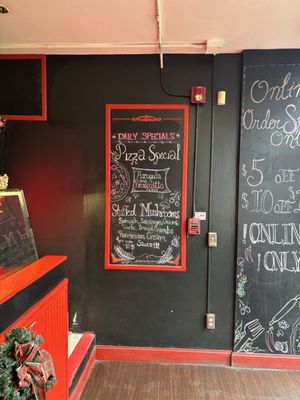 DAILY SPECIALS
Pizza Special
Arugula
Prosciutto
Stuffed Mushrooms
Spinach, Sausage, Onions
Garlic Bread Crumbs
Parmesan Cream
Sauce!!!
Online
Order Sp
Only
$5 off
$10 off
!ONLIN
!ONLY